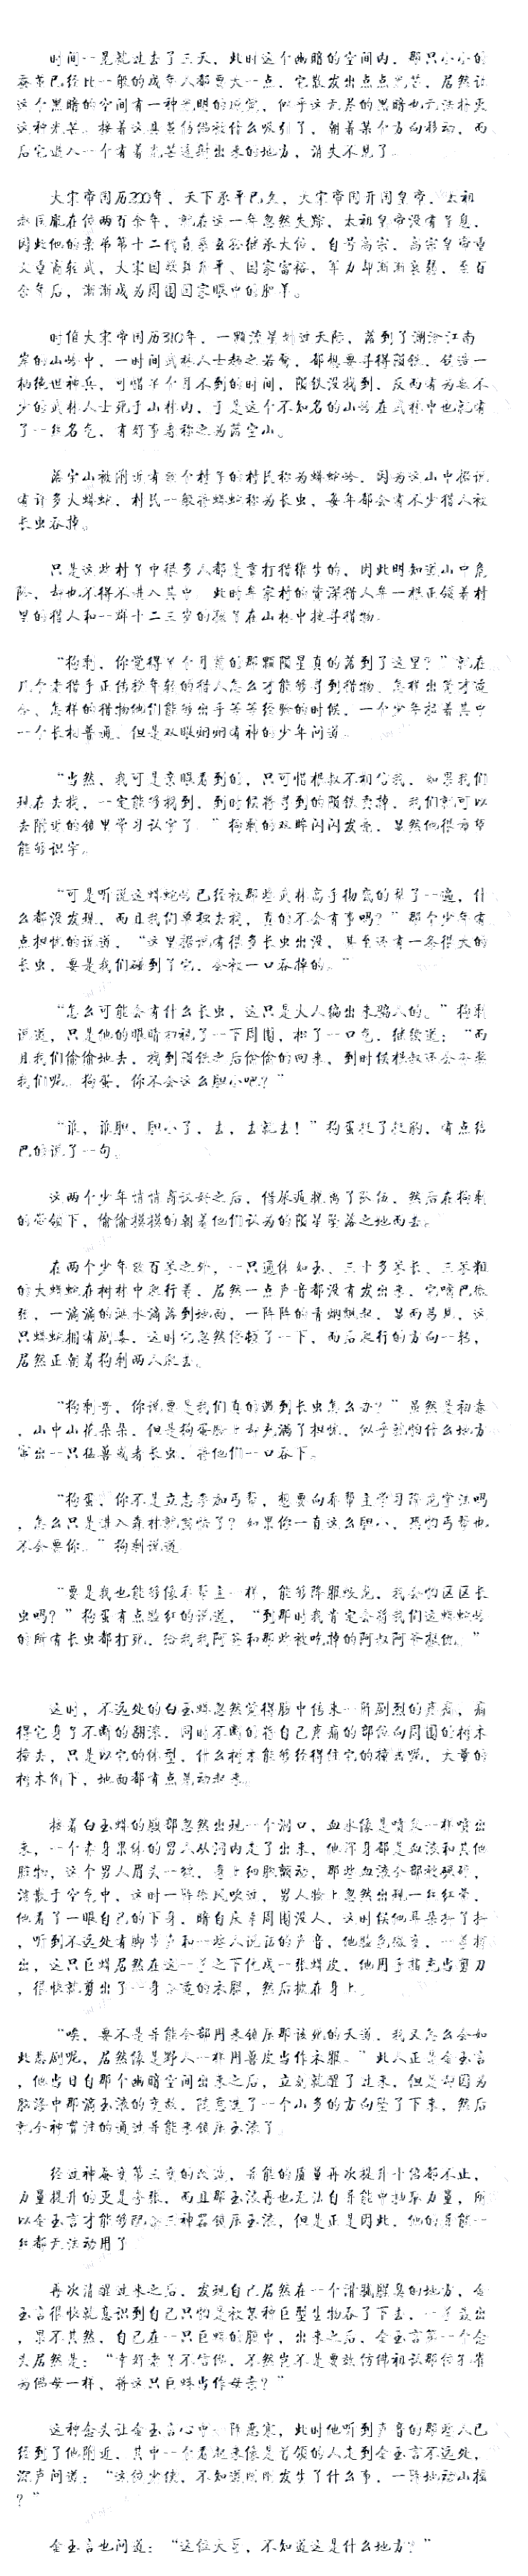 时间一晃就过去了三天，此时这个幽暗的空间内，那只小小的
蚕茧已经比一般的成年人都要大一点，它散发出点点光芒，居然让
这个黑暗的空间有一种光明的感觉，似乎这无尽的黑暗也无法将灭
这种光芒。接着这具茧仿佛被什么吸引了，朝着某个方向移动，而
后它进入一个有着光芒透射出来的地方，消失不见了。
大宋帝国历200年，天下承平已久，大宋帝国开国皇帝，太祖
赵匡胤在位两百余年，就在这一年忽然失踪，太祖皇帝没有子息，
因此他的亲弟弟第十二代直系玄孙继承大位，自号高宗，高宗皇帝重
文重商轻武，大宋国歌舞升平、国家富裕，军力却渐渐衰弱，至百
余年后，渐渐成为周围国家眼中的肥羊。
时值大宋帝国历310年，一颗流星划过天际，落到了澜沧江南
岸的山岭中，一时间武林人士趋之若鹜，都想要寻得陨铁，铸造一
柄绝世神兵，可惜半个月不到的时间，陨铁没找到，反而有为数不
少的武林人士死于山林内，于是这个不知名的山岭在武林中也就有
了一丝名气，有好事者称之为落空山。
落空山被附近有数个村子的村民称为蟒蛇岭，因为这山中据说
有许多大蟒蛇，村民一般将蟒蛇称为长虫，每年都会有不少猎人被
长虫吞掉。
只是这些村子中很多人都是靠打猎维生的，因此明知道山中危
险，却也不得不进入其中，此时牟家村的资深猎人牟一根正领着村
里的猎人和一群十二三岁的孩子在山林中搜寻猎物。
“狗剩，你觉得半个月前的那颗陨星真的落到了这里？”就在
几个老猎手正传授年轻的猎人怎么才能够寻到猎物，怎样出箭才适
合、怎样的猎物他们能够出手等等经验的时候，一个少年拉着其中
一个长相普通，但是双眼炯炯有神的少年问道。
“当然，我可是亲眼看到的，只可惜根叔不相信我，如果我们
现在去找，一定能够找到，到时候将寻到的陨铁卖掉，我们就可以
去附近的镇里学习认字了。”狗剩的双眸闪闪发亮，显然他很希望
能够识字。
“可是听说这蟒蛇岭已经被那些武林高手彻底的犁了一遍，什
么都没发现，而且我们单独去找，真的不会有事吗？”那个少年有
点担忧的说道，“这里据说有很多长虫出没，甚至还有一条很大的
长虫，要是我们碰到了它，会被一口吞掉的。”
“怎么可能会有什么长虫，这只是大人编出来骗人的。”狗剩
说道，只是他的眼睛扫视了一下周围，松了一口气，继续道：“而
且我们偷偷地去，找到陨铁之后偷偷的回来，到时候根叔还会夸奖
我们呢。狗蛋，你不会这么胆小吧？”
“谁，谁胆，胆小了，去，去就去！”狗蛋挺了挺胸，有点结
巴的说了一句。
这两个少年悄悄商议好之后，借尿遁脱离了队伍，然后在狗剩
的带领下，偷偷摸摸的朝着他们认为的陨星坠落之地而去。
在两个少年数百米之外，一只通体如玉、三十多米长、三米粗
的大蟒蛇在树林中爬行着，居然一点声音都没有发出来，它嘴巴微
张，一滴滴的涎水滴落到地面，一阵阵的青烟飘起，显而易见，这
只蟒蛇拥有剧毒，这时它忽然停顿了一下，而后爬行的方向一转，
居然正朝着狗剩两人爬去。
“狗剩哥，你说要是我们真的遇到长虫怎么办？”虽然是初春
，山中山花朵朵，但是狗蛋脸上却充满了担忧，似乎就怕什么地方
窜出一只猛兽或者长虫，将他们一口吞下。
“狗蛋，你不是立志参加丐帮，想要向乔帮主学习降龙掌法吗
，怎么只是进入森林就害怕了？如果你一直这么胆小，恐怕丐帮也
不会要你。”狗剩说道。
“要是我也能够像乔帮主一样，能够降服蛟龙，我会怕区区长
虫吗？”狗蛋有点脸红的说道，“到那时我肯定会将我们这蟒蛇岭
的所有长虫都打死，给我我阿爸和那些被吃掉的阿叔阿爷报仇。”
这时，不远处的白玉蟒忽然觉得肠中传来一阵剧烈的疼痛，痛
得它身子不断的翻滚，同时不断的将自己疼痛的部位向周围的树木
撞去，只是以它的体型，什么树才能够经得住它的撞击呢，大量的
树木倒下，地面都有点晃动起来。
接着白玉蟒的腹部忽然出现一个洞口，血水像是喷泉一样喷出
来，一个赤身果体的男人从洞内走了出来，他浑身都是血液和其他
脏物，这个男人眉头一皱，身上细胞颤动，那些血液全部被碾碎，
消散于空气中，这时一阵张风吹过，男人脸上忽然出现一丝红晕，
他看了一眼自己的下身，暗自庆幸周围没人，这时候他耳朵抖了抖
，听到不远处有脚步声和一些人说话的声音，他脸色微变，一掌拍
出，这只巨蟒居然在这一掌之下化成一张蟒皮，他用手指充当剪刀
，很快就剪出了一身合适的衣服，然后披在身上。
“唉，要不是异能全部用来镇压那该死的天道，我又怎么会如
此悲剧呢，居然像是野人一样用兽皮当作衣服。”此人正是金玉言
，他当日自那个幽暗空间出来之后，立刻就醒了过来，但是却因为
脑海中那滴玉液的变故，随意选了一个山多的方向坠了下来，然后
就全神贯注的通过异能来镇压玉液了。
经过神蚕变第三变的改造，异能的质量再次提升十倍都不止，
力量提升的更是夸张，而且那玉液再也无法自异能中抽取力量，所
以金玉言才能够配合三神器镇压玉液，但是正是因此，他的异能一
丝都无法动用了。
再次清醒过来之后，发现自己居然在一个滑腻腥臭的地方，金
玉言很快就意识到自己只怕是被某种巨型生物吞了下去，一掌轰出
，果不其然，自己在一只巨蟒的腹中，出来之后，金玉言第一个念
头居然是：“幸好老子不信佛，不然岂不是要效仿佛祖认那位孔雀
为佛母一样，将这只巨蟒当作母亲？”
这种念头让金玉言心中一阵恶寒，此时他听到声音的那些人已
经到了他附近，其中一个看起来像是首领的人走到金玉言不远处，
沉声问道：“这位少侠，不知道刚刚发生了什么事，一阵地动山摇
？”
金玉言也问道：“这位大哥，不知道这是什么地方？”